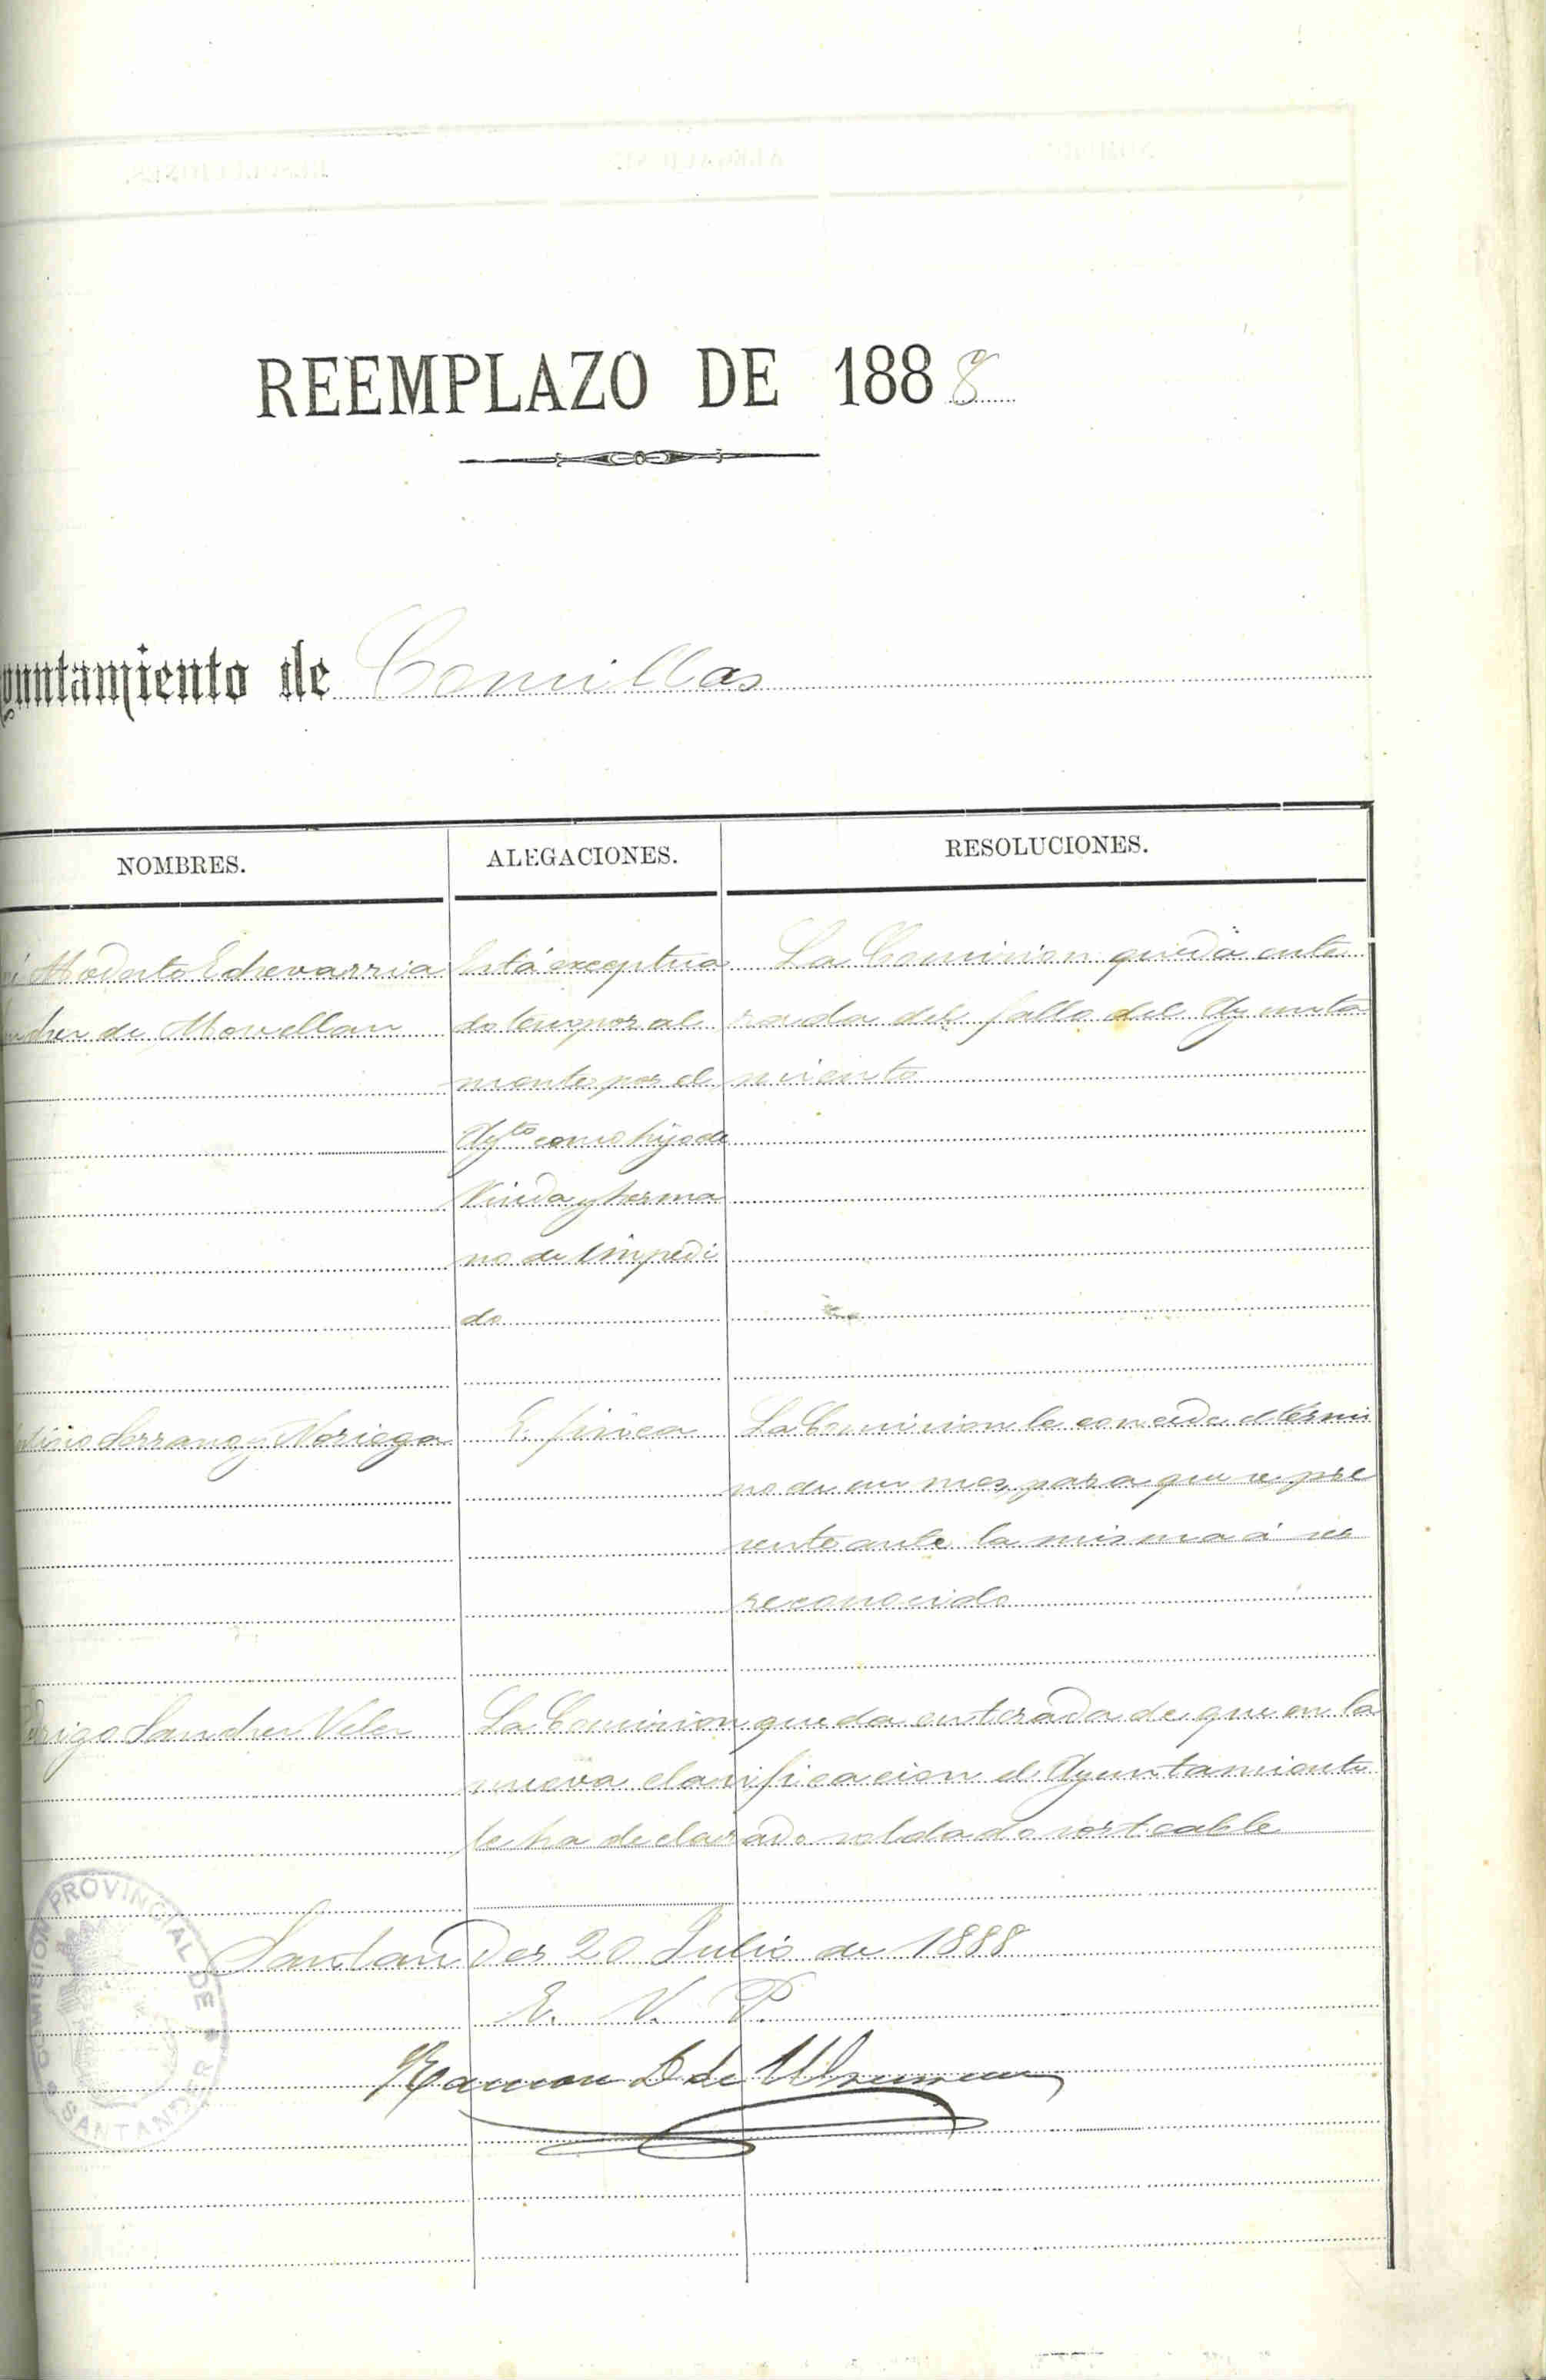 REEMPLAZO DE 1888
yuntamiento de Comillas
NOMBRES. ALEGACIONES. RESOLUCIONES.
Modesto Echevarria Está exceptua La Comision queda ente
de Movellan do temporal rada del fallo del Ayunta
mente por el miento
Ayto como hijo de
Viuda y herma
no de impedi
do
Serrano y Noriega E. fisica La Comision le concede el térmi
no de un mes para que se pre
sente ante la misma á ser
reconocido
Sanchez Velez La Comision queda enterada de que en la
nueva clasificacion el Ayuntamiento
le ha declarado soldado sorteable
Santander 20 Julio de 1888
E. V. P.
Ramon D de
COMISION PROVINCIAL DE SANTANDER